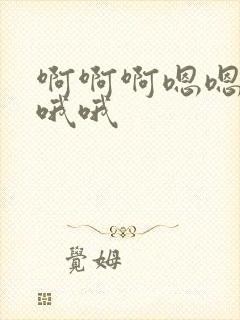 啊啊啊嗯嗯
哦哦
覺姆